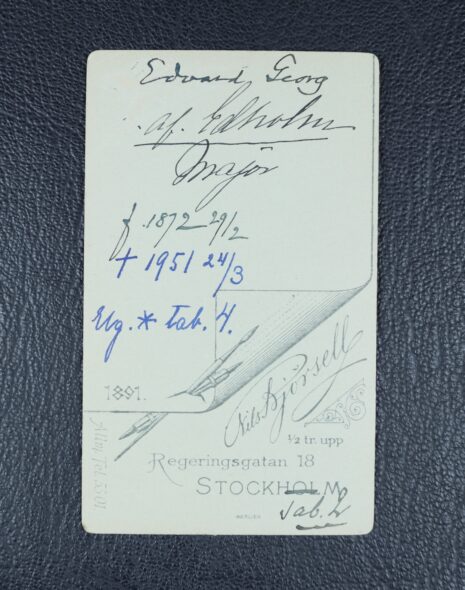 Edvard Georg
af. Edholm
Major
f. 1872 29/2
† 1951 24/3
Elg. * tab. 4.
1891.
Nils Björsell
½ tr. upp
Regeringsgatan 18
STOCKHOLM
tab. 2